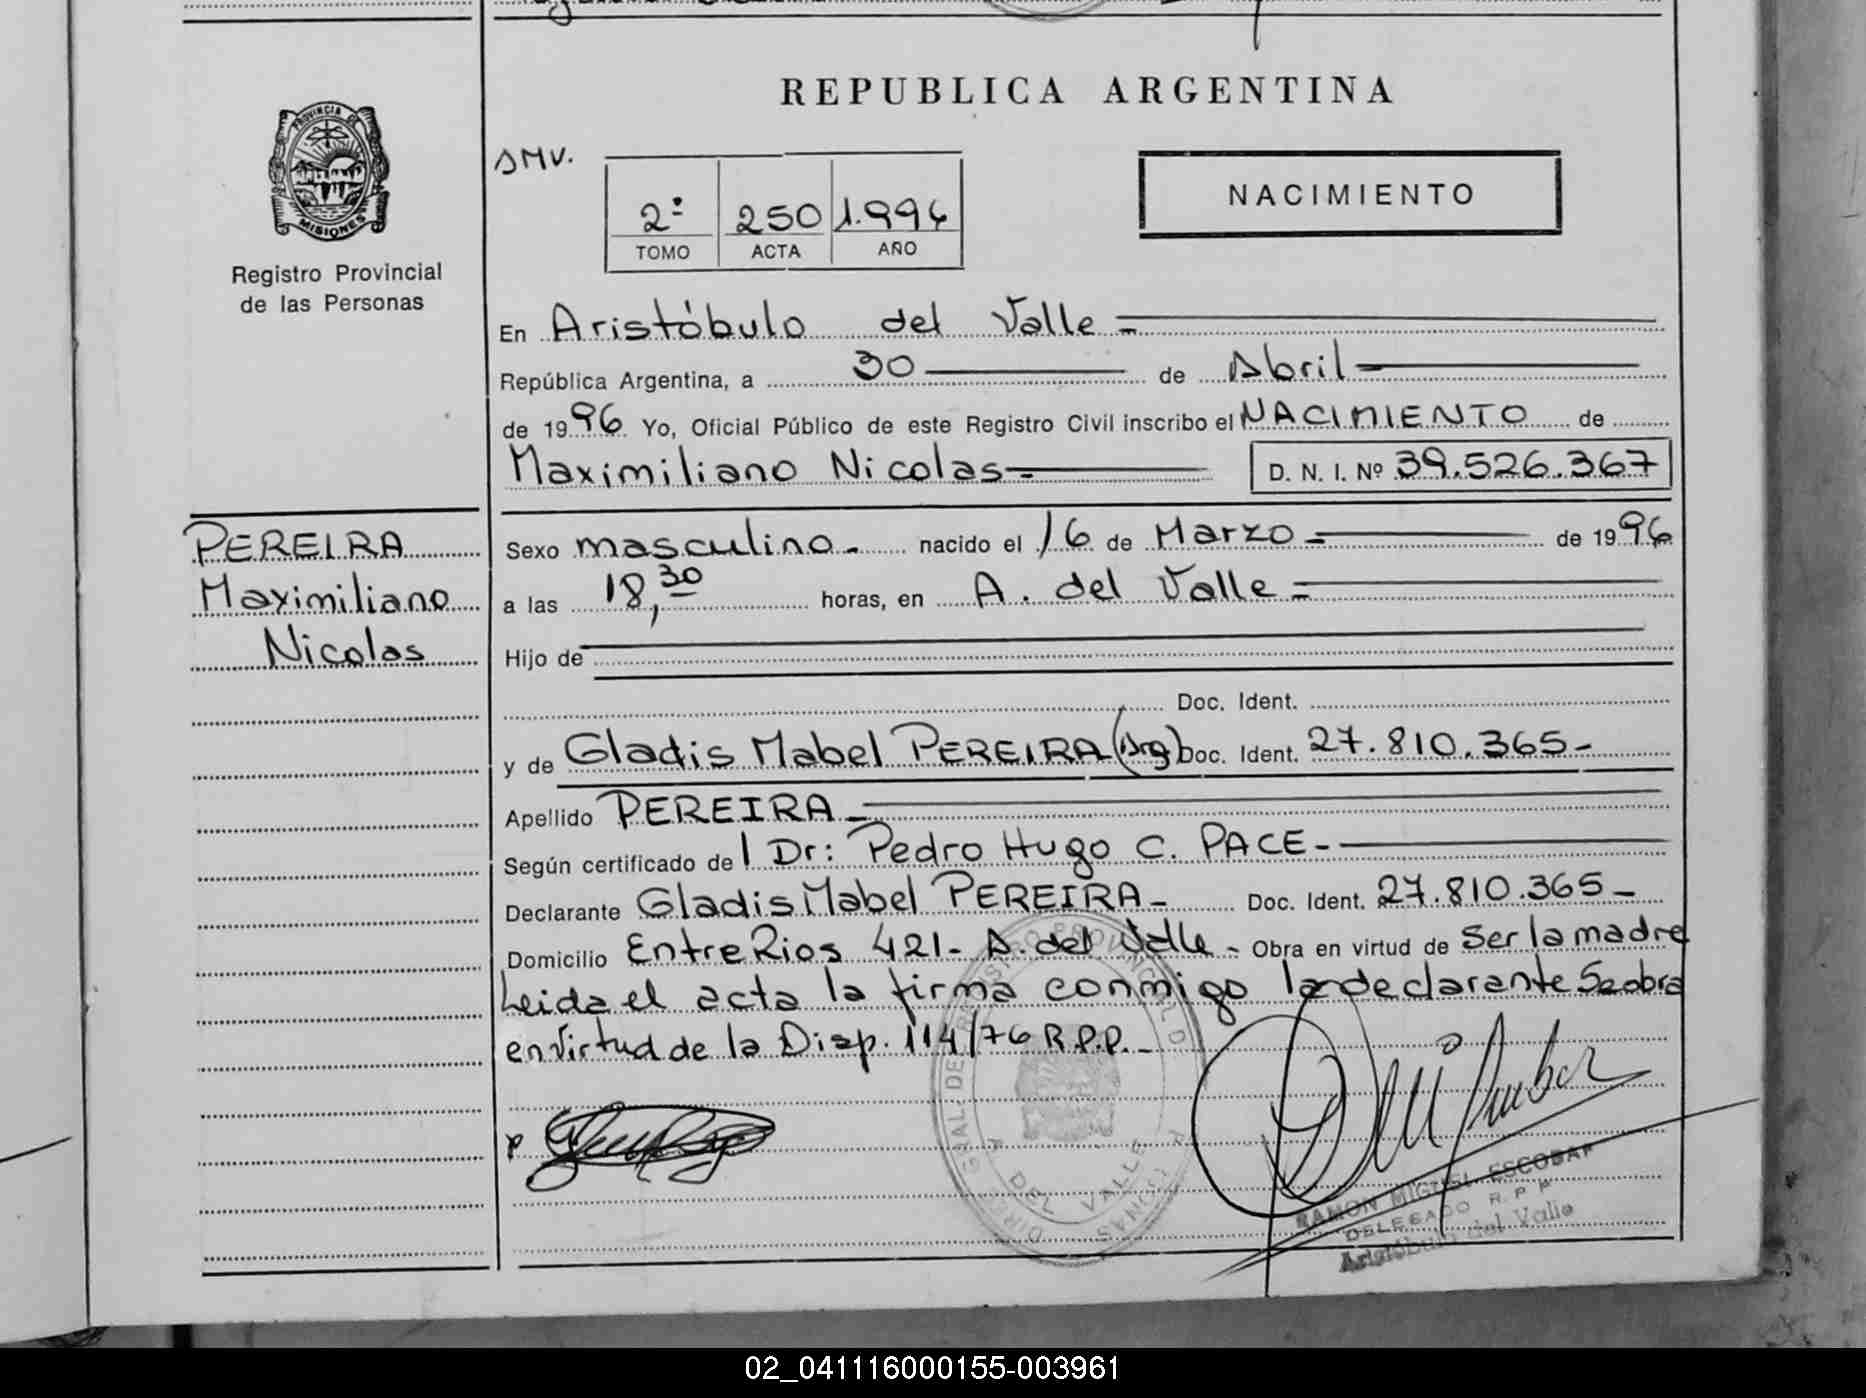 REPUBLICA ARGENTINA
PROVINCIA DE
MISIONES
Registro Provincial
de las Personas
SMV.
2º 250 1.996
TOMO ACTA AÑO
NACIMIENTO
En Aristóbulo del Valle -
República Argentina, a 30 de Abril
de 1996 Yo, Oficial Público de este Registro Civil inscribo el NACIMIENTO de
Maximiliano Nicolas- D. N. I. Nº 39.526.367
PEREIRA
Maximiliano
Nicolas
Sexo masculino- nacido el 16 de Marzo de 1996
a las 18,30 horas, en A. del Valle =
Hijo de
Doc. Ident.
y de Gladis Mabel PEREIRA (Arg) Doc. Ident. 27.810.365-
Apellido PEREIRA-
Según certificado de l Dr: Pedro Hugo C. PACE-
Declarante Gladis Mabel PEREIRA- Doc. Ident. 27.810.365-
Domicilio Entre Rios 421- A. del Valle - Obra en virtud de Ser la madre
Leida el acta la firma conmigo la declarante Se obra
en virtud de la Disp. 114/76 R.P.P.-
A DEL VALLE
RAMON MIGUEL ESCOBAR
DELEGADO R. P. P.
Aristóbulo del Valle
02_041116000155-003961